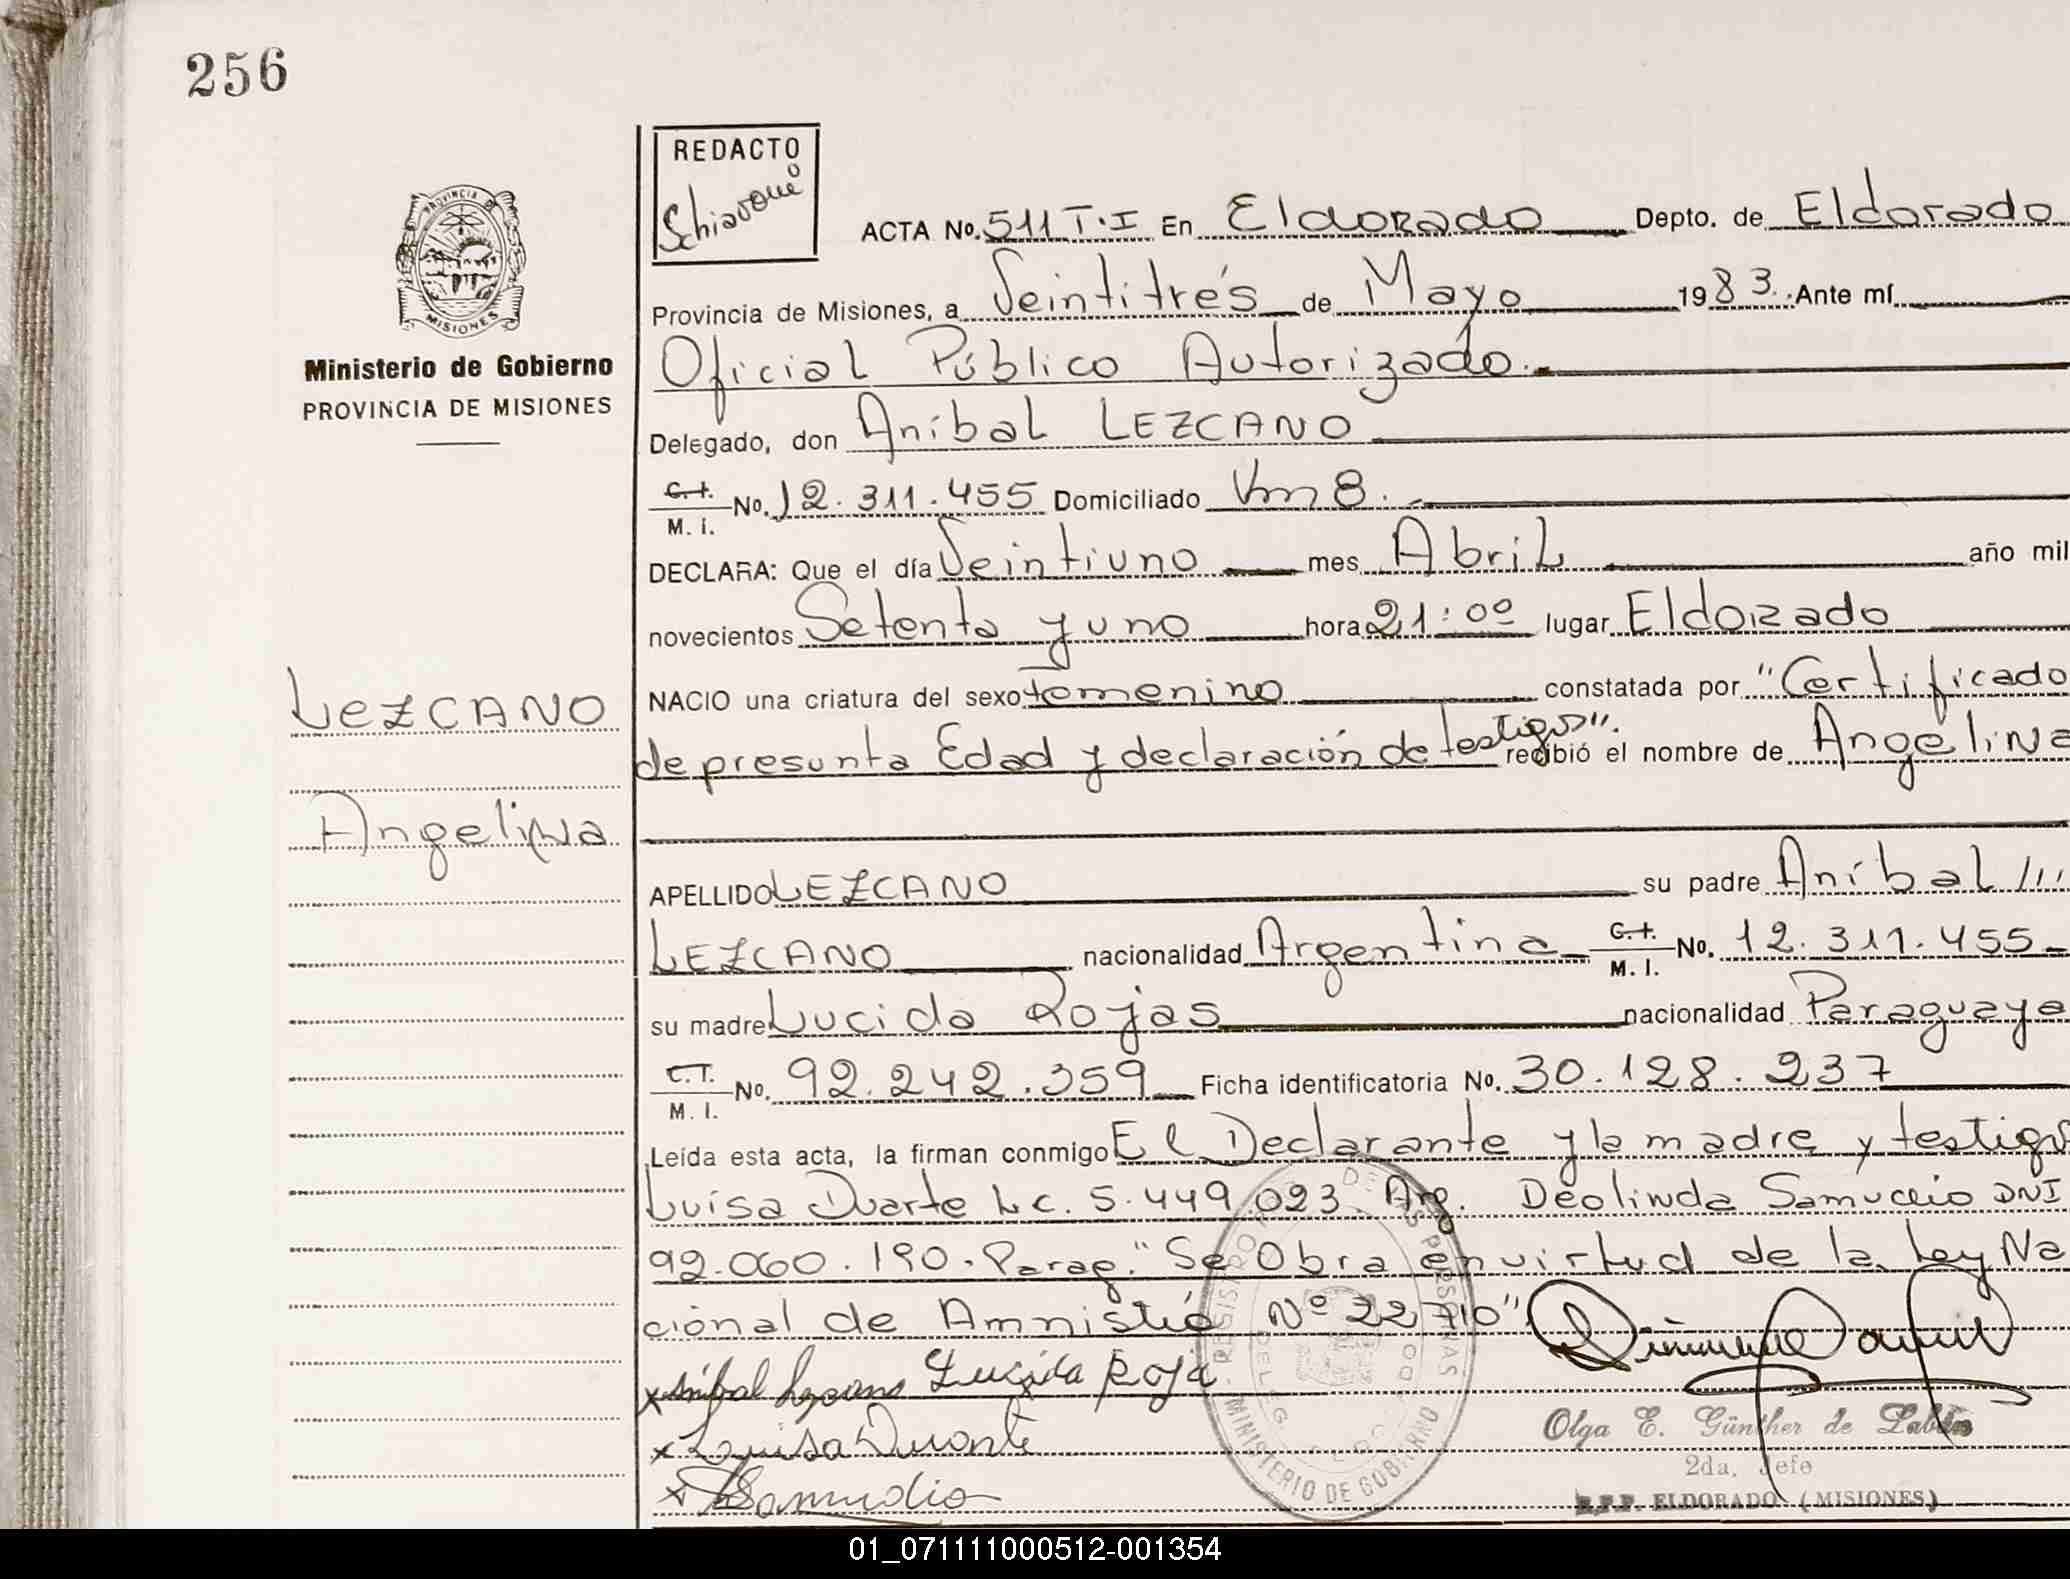 256
REDACTO
Schiavoni
PROVINCIA DE
MISIONES
Ministerio de Gobierno
PROVINCIA DE MISIONES
ACTA No. 511 T.I En Eldorado Depto. de Eldorado
Provincia de Misiones, a Veintitrés de Mayo 1983. Ante mí
Oficial Público Autorizado.
Delegado, don Aníbal LEZCANO
C.I. M. I. No. 12.311.455 Domiciliado Km 8.
DECLARA: Que el día Veintiuno mes Abril año mil
novecientos Setenta y uno hora 21:00 lugar Eldorado
NACIO una criatura del sexo Femenino constatada por "Certificado
de presunta Edad y declaración de testigos". recibió el nombre de Angelina
LEZCANO
Angelina
APELLIDO LEZCANO su padre Aníbal ///
LEZCANO nacionalidad Argentina C.I. M. I. No. 12.311.455
su madre Lucida Rojas nacionalidad Paraguaya
C.I. M. I. No. 92.242.359 Ficha identificatoria No. 30.128.237
Leída esta acta, la firman conmigo El Declarante y la madre y testigos
Luisa Duarte L.C. 5.449.023 Arg. Deolinda DNI
92.060.190. Parag. "Se Obra en virtud de la Ley Na
cional de Amnistía Nº 22710"
x Aníbal Lezcano Lucida Roja
x Luisa Duarte
x Samudio
REGISTRO DE LAS PERSONAS
MINISTERIO DE GOBIERNO
Olga E. Günther de
2da. Jefe
R.P.P. ELDORADO (MISIONES)
01_071111000512-001354